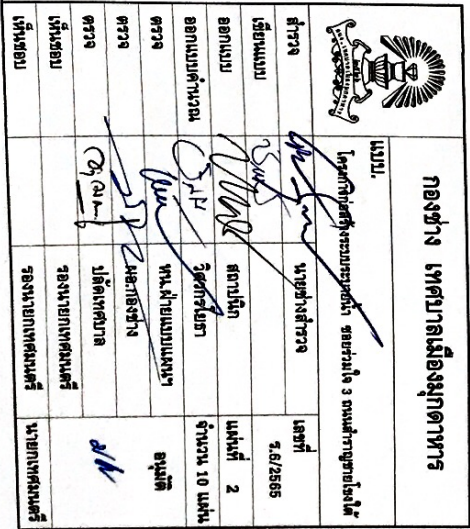 กองช่าง เทศบาลเมืองมุกดาหาร
แบบ.
โครงการก่อสร้างระบบระบายน้ำ ซอยร่วมใจ 3 ถนนสำราญชายโขงใต้
สำรวจ นายช่างสำรวจ เลขที่
เขียนแบบ ว.6/2565
ออกแบบ สถาปนิก แผ่นที่ 2
ออกแบบคำนวณ วิศวกรโยธา จำนวน 10 แผ่น
ตรวจ หน.ฝ่ายแบบแผนฯ อนุมัติ
ตรวจ ผอ.กองช่าง
ตรวจ ปลัดเทศบาล
เห็นชอบ รองนายกเทศมนตรี
เห็นชอบ รองนายกเทศมนตรี นายกเทศมนตรี